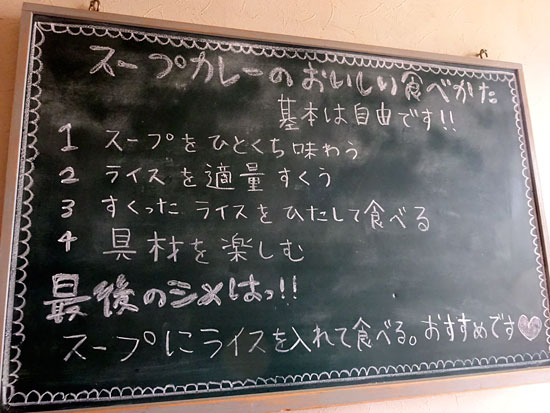 スープカレーのおいしい食べかた
基本は自由です!!
1 スープをひとくち味わう
2 ライスを適量すくう
3 すくったライスをひたして食べる
4 具材を楽しむ
最後のシメはっ!!
スープにライスを入れて食べる。おすすめです♡